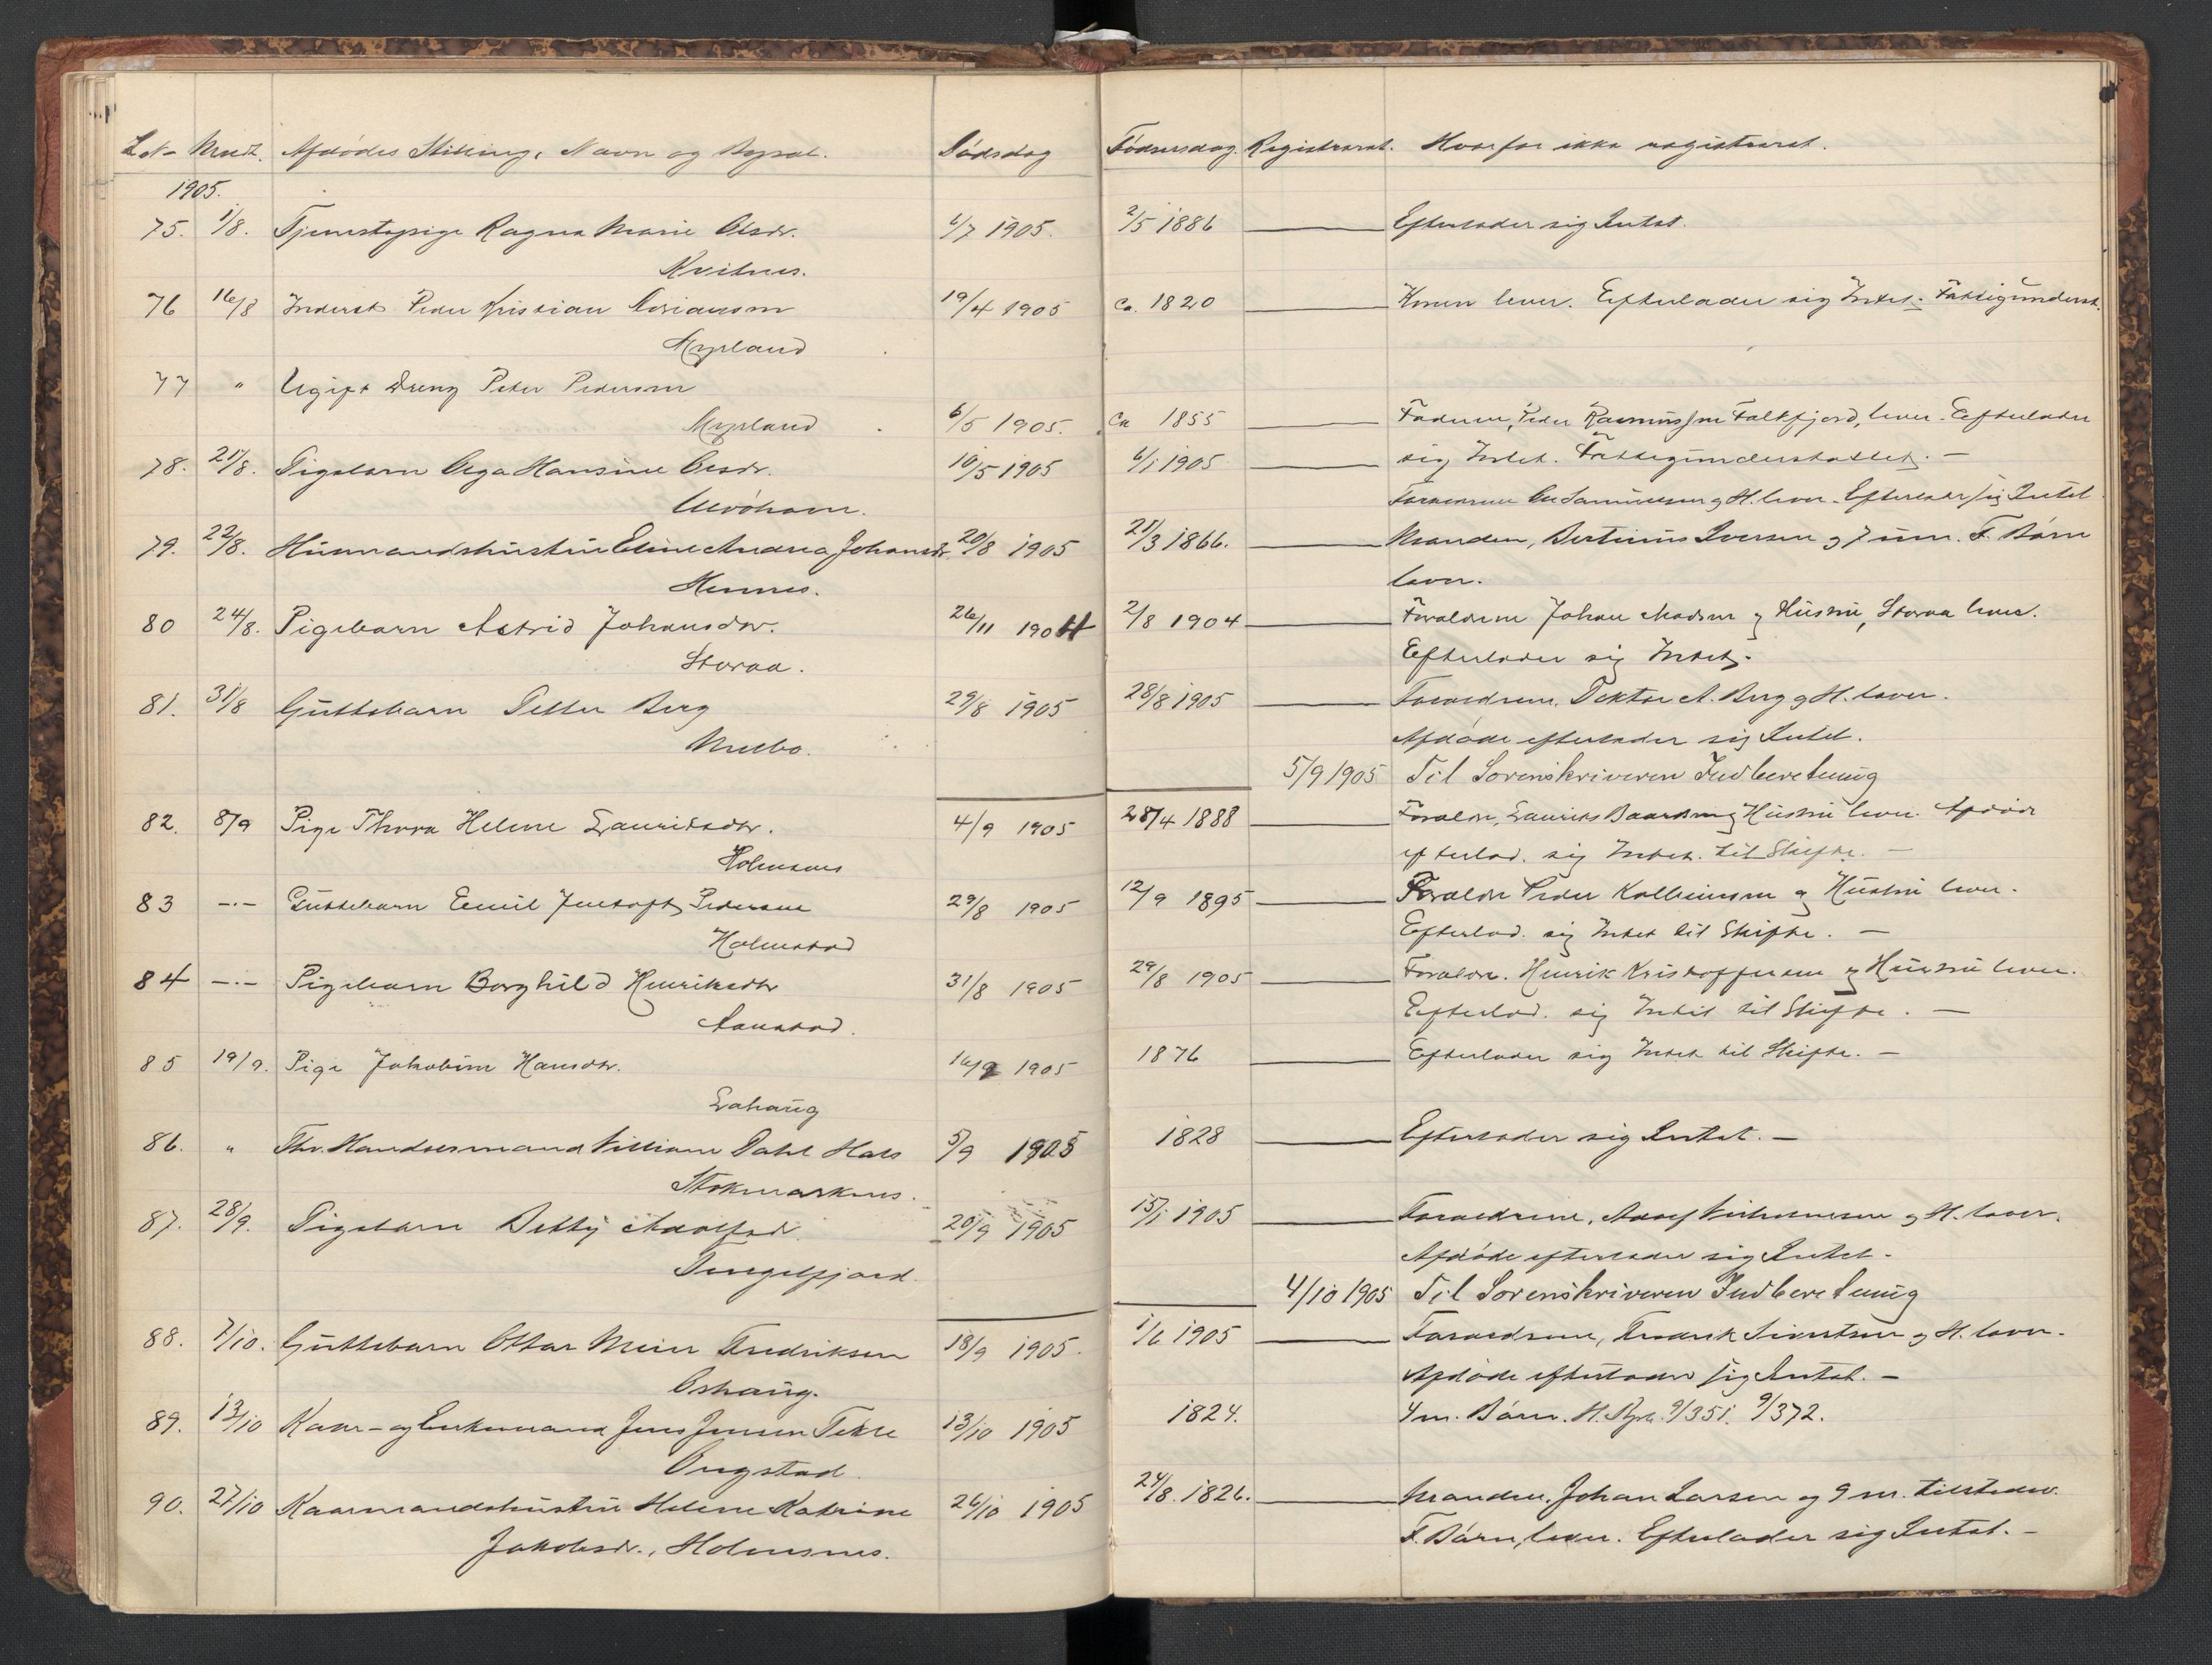 Lb No Anmeldt. Afdødes Stilling, Navn og Bopæl. Dødsdag Fødselsdag. Registreret. Hvorfor ikke registreret.
1905.
75. 1/8. Tjenestepige Ragna Marie Olsdr. 6/7 1905. 2/5 1886 Efterlader sig Intet.
Kvitnes.
76 16/8 Inderst Peder Kristian Adriansen 19/4 1905 Ca. 1820 Konen lever. Efterlader sig Intet. Fattigunderst.
Myrland
77 " Ugift Dreng Peder Pedersen
Myrland 6/5 1905. Ca 1855 Faderen, Peder Rasmussen Falkfjord, lever. Efterlader
78. 21/8. Pigebarn Olga Hansine Olsdr. 10/5 1905 6/1 1905 sig Intet. Fattigunderstøttet. —
Ulvöhavn. Forældrene Ole Samuelsen og H. lever. Efterlader sig Intet.
79. 22/8. Husmandshustru Eline Andrea Johansdr. 20/8 1905 21/3 1866. Manden, Bertinius Iversen og 7 um. F. Børn
Hennes. lever.
80 24/8. Pigebarn Astrid Johansdtr. 26/11 1904 2/8 1904 Forældrene Johan Madsen og Hustru, Storaa lever.
Storaa. Efterlader sig Intet.
81. 31/8 Guttebarn Petter Berg 29/8 1905 28/8 1905 Forældrene, Doktor A. Berg og H. lever.
Melbo. Afdøde efterlader sig Intet.
5/9 1905 Til Sorenskriveren Indberetning
82. 8/9 Pige Thora Helene Lauritsdtr. 4/9 1905 28/4 1888 Forældre, Laurits Baardsen og Hustru lever. Afdøde
Holmsnes efterlad. sig Intet til Skifte. —
83 -.- Guttebarn Emil Jentoft Pedersen 29/8 1905 12/9 1895 Forældre Peder Kolbeinsen og Hustru lever.
Holmstad Efterlad. sig Intet til Skifte. —
84 -.- Pigebarn Borghild Henriksdtr 31/8 1905 29/8 1905 Forældre. Henrik Kristoffersen og Hustru lever.
Aanstad. Efterlad. sig Intet til Skifte. —
85 19/9. Pige Jakobine Hansdtr. 16/9 1905 1876 Efterlader sig Intet til Skifte. —
Lahaug
86. " Fhv. Handelsmand Villiam Dahl Hals 5/9 1905 1828 Efterlader sig Intet. —
Stokmarknes.
87. 28/9. Pigebarn Betty Adolfsd. 20/9 1905 15/1 1905 Forældrene, Adolf Vilhelmsen og H. lever.
Tengelfjord. Afdøde efterlader sig Intet.
4/10 1905 Til Sorenskriveren Indberetning
88. 7/10. Guttebarn Ottar Meier Fredriksen 18/9 1905. 1/6 1905 Forældrene, Fredrik Sivertsen og H. lever.
Oshaug. Afdøde efterlader sig Intet. —
89. 13/10 Kaar- og Enkemand Jens Jensen Tekle 13/10 1905 1824. 4 m. Børn. H. Reg. 9/351. 9/372.
Ongstad
90. 27/10 Kaarmandshustru Helene Katrine 26/10 1905 24/8. 1826. Manden, Johan Larsen og 9 m. tilstedev.
Jakobsdr., Holmsnes. F. Børn, lever. Efterlader sig Intet. —